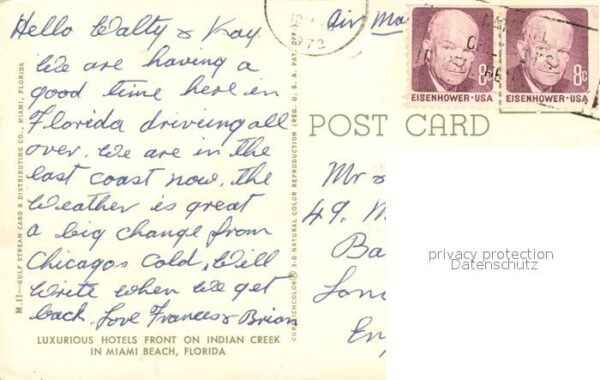 Hello Walty & Kay
We are having a
good time here in
Florida driving all
over. We are in the
east coast now, the
Weather is great
a big change from
Chicagos Cold, Will
Write when we get
back. Love Frances & Brian
LUXURIOUS HOTELS FRONT ON INDIAN CREEK
IN MIAMI BEACH, FLORIDA
M.11—GULF STREAM CARD & DISTRIBUTING CO., MIAMI, FLORIDA
CURTEICHCOLOR® 3-D NATURAL COLOR REPRODUCTION (REG. U. S. A. PAT. OFF.
1972
Air Ma
8c
EISENHOWER·USA
8c
EISENHOWER·USA
POST CARD
Mr &
49. M
Ba
Lon
En
privacy protection
Datenschutz